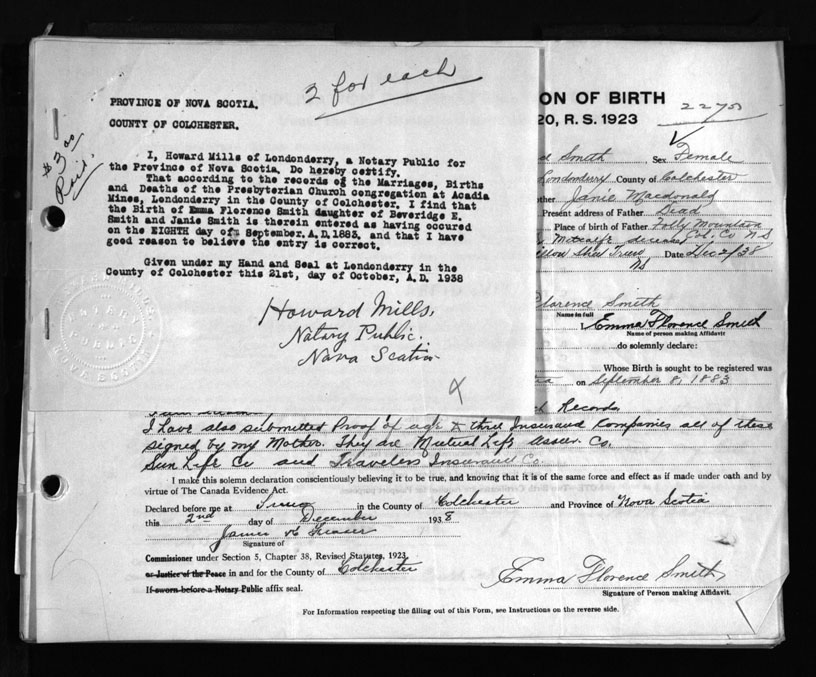 2 for each
PROVINCE OF NOVA SCOTIA.
COUNTY OF COLCHESTER.
$3.00
Paid.
I, Howard Mills of Londonderry, a Notary Public for
the Province of Nova Scotia. Do hereby certify.
That according to the records of the Marriages, Births
and Deaths of the Presbyterian Church congregation at Acadia
Mines, Londonderry in the County of Colchester. I find that
the Birth of Emma Florence Smith daughter of Beveridge E.
Smith and Janie Smith is therein entered as having occured
on the EIGHTH day of September.A.D.1883. and that I have
good reason to believe the entry is correct.
Given under my Hand and Seal at Londonderry in the
County of Colchester this 21st, day of October, A.D. 1938
Howard Mills,
Notary Public.
Nova Scotia
ON OF BIRTH
2275
20, R. S. 1923
Smith Sex Female
Londonderry County of Colchester
other Janie Macdonald
Present address of Father Dead
Place of birth of Father Folly Mountain
Col. Co N.S
Metcalfe deceased
Willow Street Truro Date Dec 2/38
NS
Florence Smith
Name in full
I, Emma Florence Smith
Name of person making Affidavit
do solemnly declare:
Whose Birth is sought to be registered was
on September 8, 1883
Records
I have also submitted Proof of age to three Insurance Companies all of these
signed by my Mother. They are Mutual Life Assur. Co.
Sun Life Co and Travelers Insurance Co.
I make this solemn declaration conscientiously believing it to be true, and knowing that it is of the same force and effect as if made under oath and by
virtue of The Canada Evidence Act.
Declared before me at Truro in the County of Colchester and Province of Nova Scotia
this 2nd day of December 1938
James Fraser
Signature of
Commissioner under Section 5, Chapter 38, Revised Statutes, 1923
or Justice of the Peace in and for the County of Colchester
If sworn before a Notary Public affix seal.
Emma Florence Smith
Signature of Person making Affidavit.
For Information respecting the filling out of this Form, see Instructions on the reverse side.